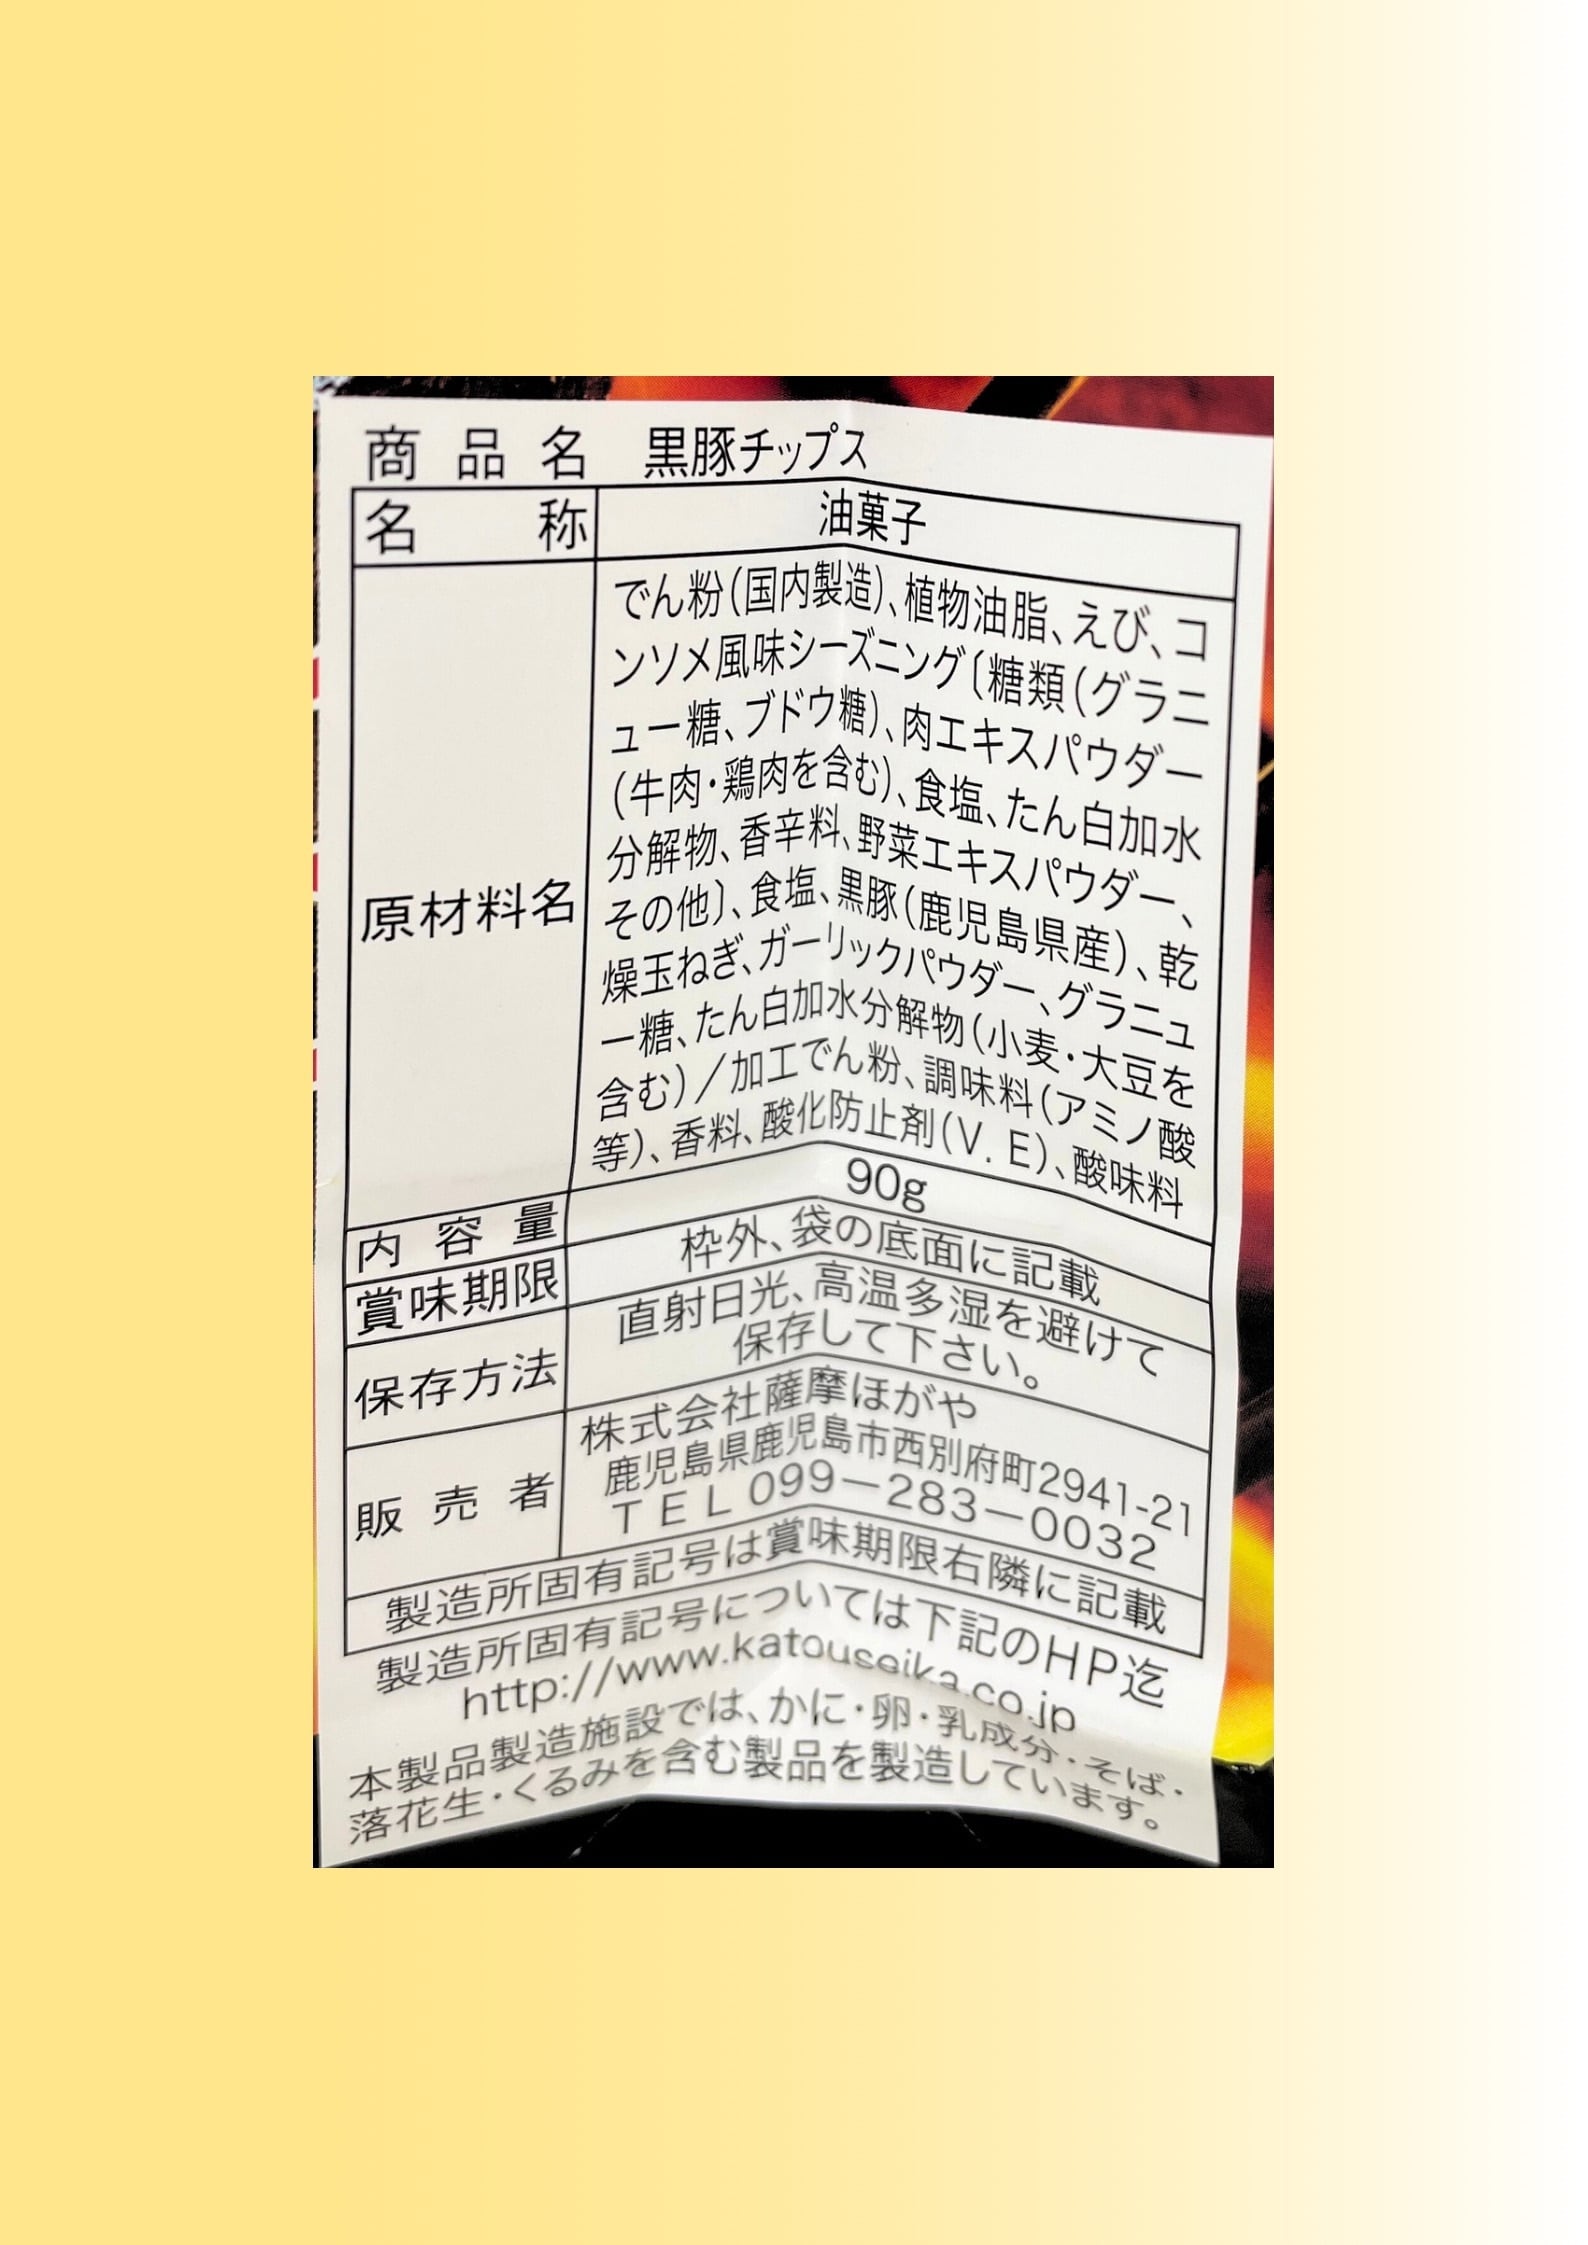 商品名 黒豚チップス
名称 油菓子
原材料名
でん粉(国内製造)、植物油脂、えび、コ
ンソメ風味シーズニング〔糖類(グラニ
ュー糖、ブドウ糖)、肉エキスパウダー
(牛肉・鶏肉を含む)、食塩、たん白加水
分解物、香辛料、野菜エキスパウダー、
その他〕、食塩、黒豚(鹿児島県産)、乾
燥玉ねぎ、ガーリックパウダー、グラニュ
ー糖、たん白加水分解物(小麦・大豆を
含む)／加工でん粉、調味料(アミノ酸
等)、香料、酸化防止剤(V.E)、酸味料
内容量 90g
賞味期限 枠外、袋の底面に記載
保存方法 直射日光、高温多湿を避けて
保存して下さい。
販売者 株式会社薩摩ほがや
鹿児島県鹿児島市西別府町2941-21
TEL 099－283－0032
製造所固有記号は賞味期限右隣に記載
製造所固有記号については下記のHP迄
http://www.katouseika.co.jp
本製品製造施設では、かに・卵・乳成分・そば・
落花生・くるみを含む製品を製造しています。